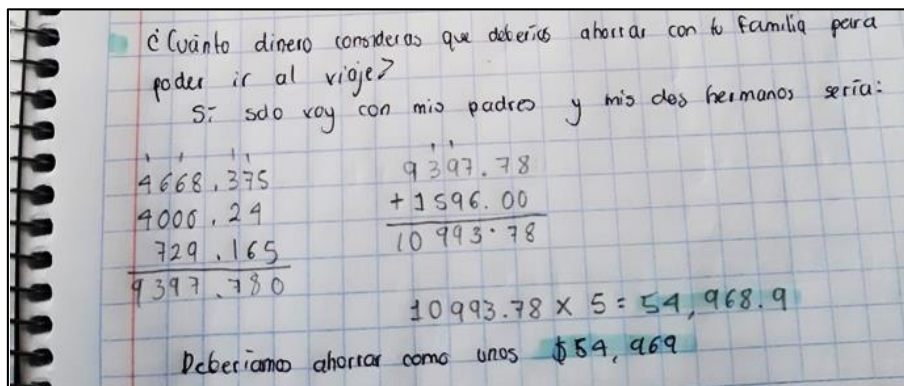 ¿Cuánto dinero consideras que deberías ahorrar con tu familia para
poder ir al viaje?
Si solo voy con mis padres y mis dos hermanos sería:
4668.375
4000.24
729.165
9397.780
9397.78
+1596.00
10993.78
10993.78 x 5 = 54,968.9
Deberiamos ahorrar como unos $54,969